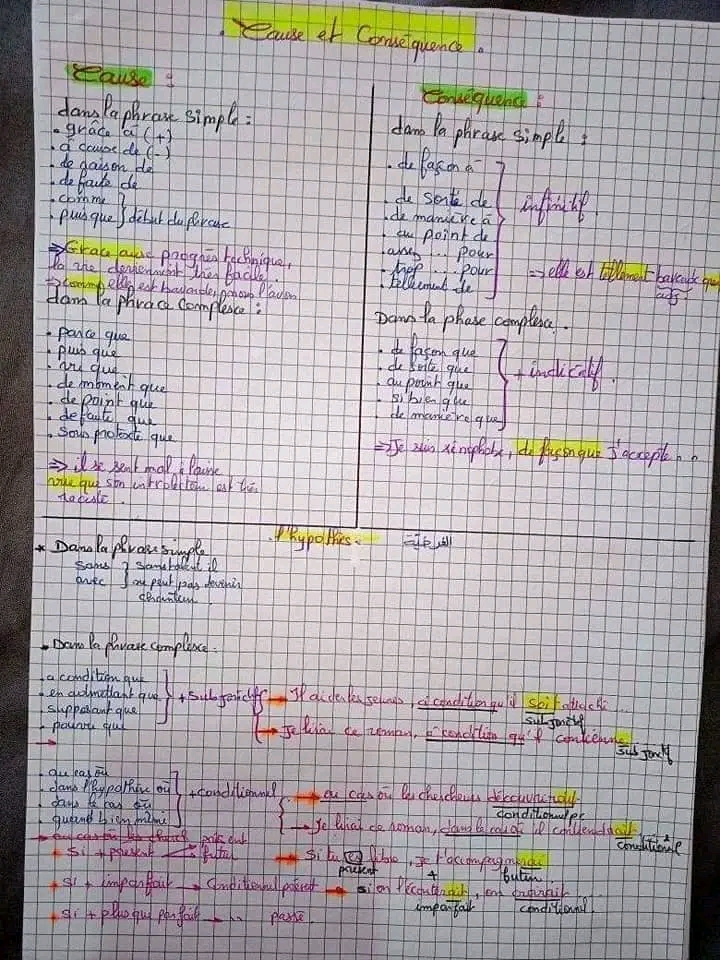 Cause et Conséquence.
Cause :
dans la phrase simple :
. grâce à (+)
. à cause de (-)
. de raison de
. de faute de
. comme
. puis que } début du phrase
⇒ Grace aux progrès technique,
la vie deviennent très facile..
⇒ comm elle est bavarde, nous l'avon
dans la phrace Complexe :
. parce que
. puis que
. vu que
. de moment que
. de point que
. de faute que
. sous protexte que
⇒ il se sent mal à l'aise
vue que son introlecteur est très
raciste.
Conséquence :
dans la phrase simple :
. de façon à
. de sorte de
. de manière à
. au point de
. assez ... pour
. trop ... pour
. tellement de
} infinitif.
⇒ elle est tellement bavarde que
adj
Dans la phase complexe.
. de façon que
. de sorte que
. au point que
. si bien que
. de manière que
} + indicatif.
⇒ Je suis xénophobe, de façon que j'accepte
. l'hypothès. الفرضية
* Dans la phrase simple
sans } sans talent il
avec } ne peut pas devenir
chanteur.
. Dans la phrase complexe :
. a condition que
. en admettant que
. supposant que
. pourvu que
} + Subjonctif
→ Il aider les jeunes, à condition qu'il soit attaché ...
subjonctif
→ Je lirai ce roman, à condition qu'il contienne
subjonctif
. au cas où
. dans l'hypothèse où
. dans le cas où
. quand bien même
} + conditionnel
→ au cas où les chercheurs découvriraient
→ Je lirai ce roman, dans le cas où il contiendrait
conditionnel
. Si + présent → présent
futur
→ Si tu es libre, je t'accompagnerai
présent + futur
. Si + imparfait → Conditionnel présent → si on l'écouterait, on croirait
imparfait conditionnel.
. Si + plus que parfait → " " passé.